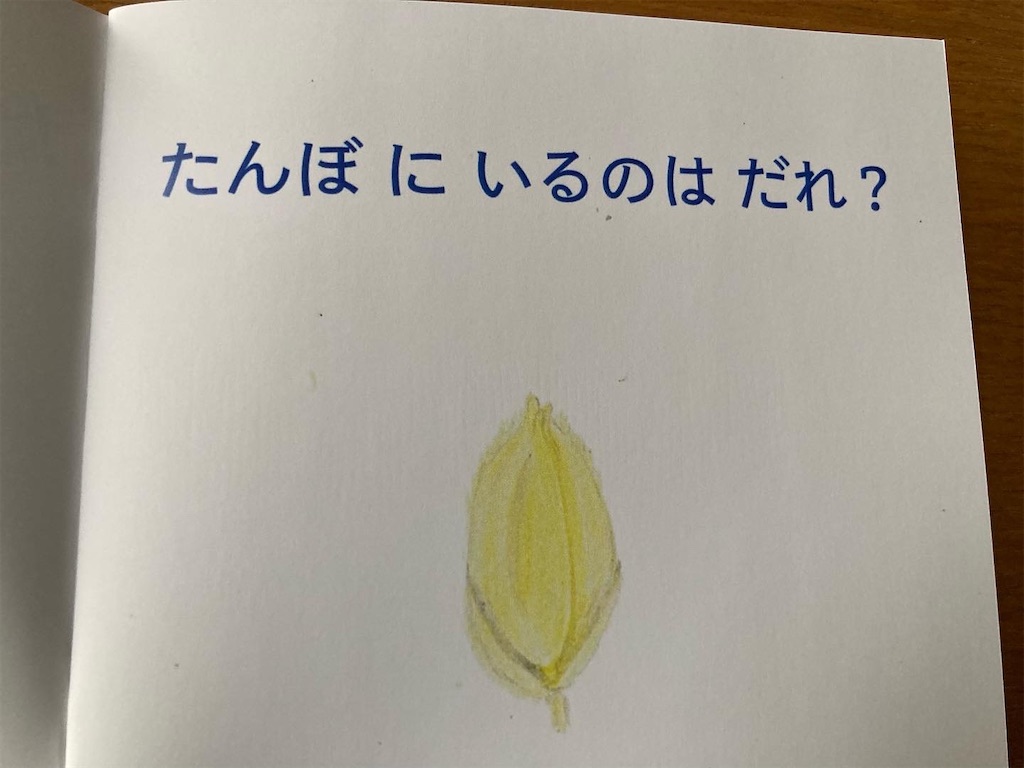 たんぼ に いるのは だれ？